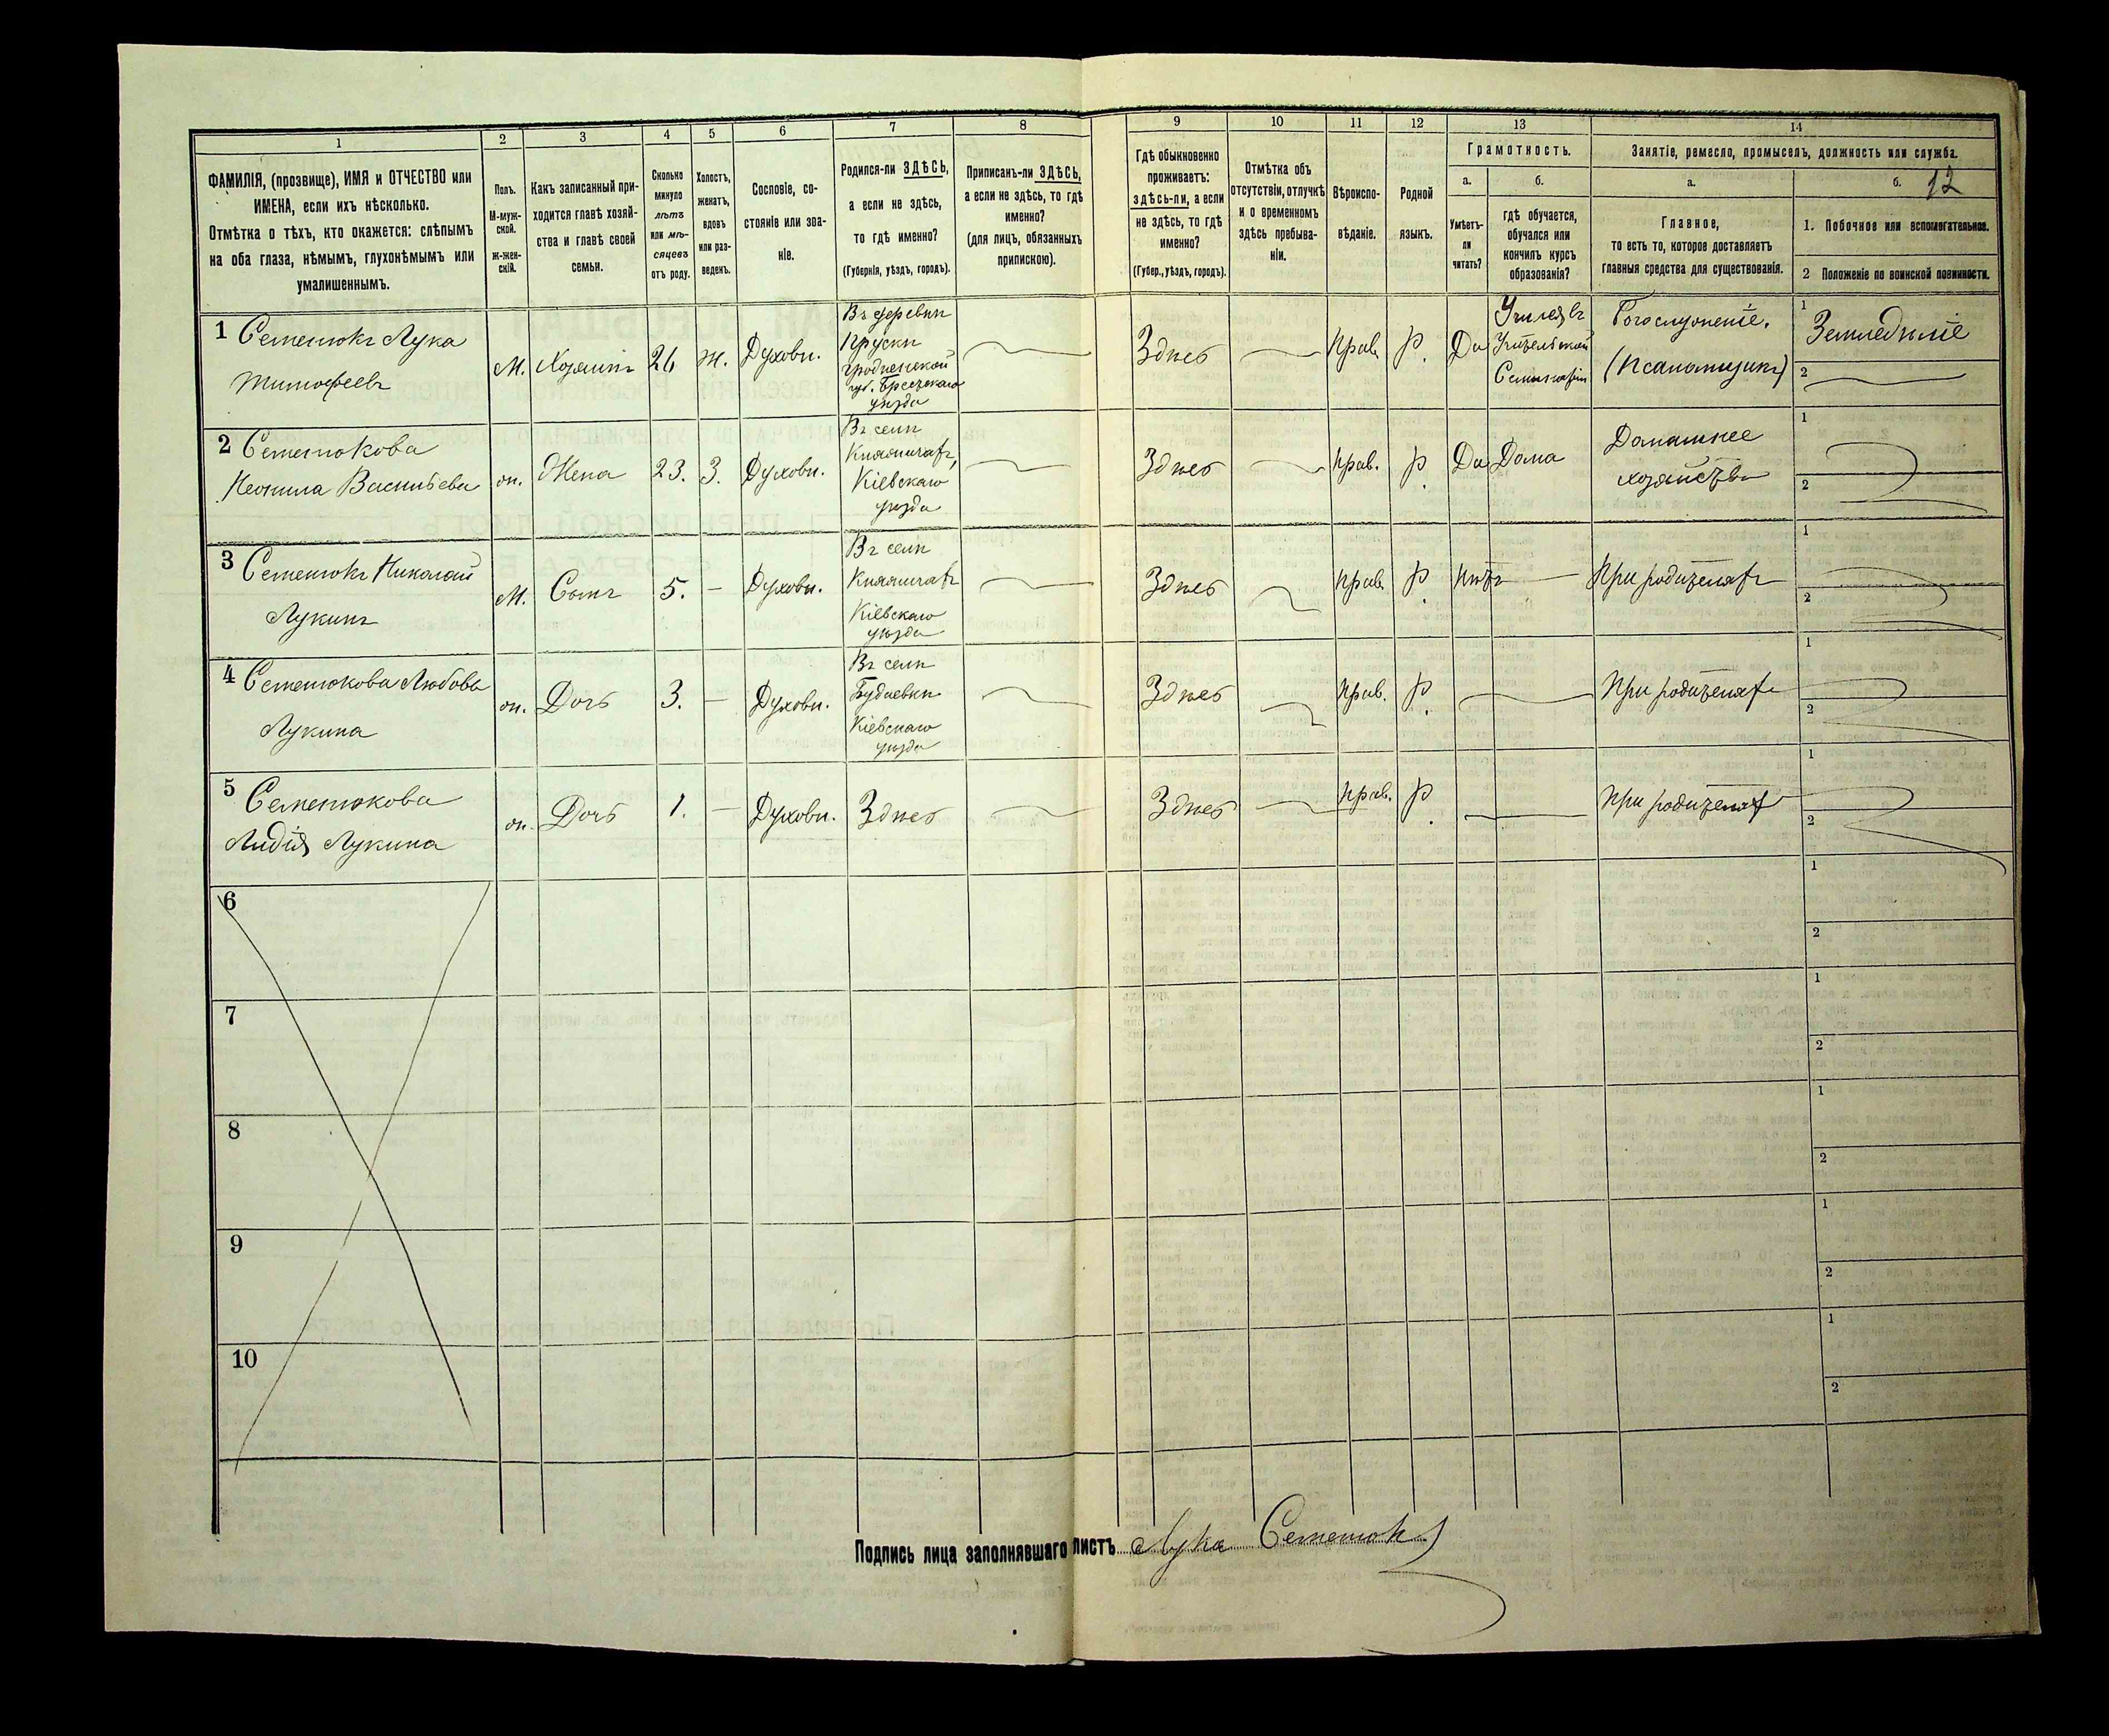 1 2 3 4 5 6 7 8 9 10 11 12 13 14
ФАМИЛІЯ, (прозвище), ИМЯ и ОТЧЕСТВО или
ИМЕНА, если ихъ нѣсколько.
Отмѣтка о тѣхъ, кто окажется: слѣпымъ
на оба глаза, нѣмымъ, глухонѣмымъ или
умалишеннымъ.
Полъ.
М-муж-
ской.
ж-жен-
скій.
Какъ записанный при-
ходится главѣ хозяй-
ства и главѣ своей
семьи.
Сколько
минуло
лѣтъ
или мѣ-
сяцевъ
отъ роду.
Холостъ,
женатъ,
вдовъ
или раз-
веденъ.
Сословіе, со-
стояніе или зва-
ніе.
Родился-ли ЗДѢСЬ,
а если не здѣсь,
то гдѣ именно?
(Губернія, уѣздъ, городъ).
Приписанъ-ли ЗДѢСЬ,
а если не здѣсь, то гдѣ
именно?
(для лицъ, обязанныхъ
припискою).
Гдѣ обыкновенно
проживаетъ:
здѣсь-ли, а если
не здѣсь, то гдѣ
именно?
(Губер., уѣздъ, городъ).
Отмѣтка объ
отсутствіи, отлучкѣ
и о временномъ
здѣсь пребыва-
ніи.
Вѣроиспо-
вѣданіе.
Родной
языкъ.
Грамотность.
а.
Умѣетъ-
ли
читать?
б.
гдѣ обучается,
обучался или
кончилъ курсъ
образованія?
Занятіе, ремесло, промыселъ, должность или служба.
а.
Главное,
то есть то, которое доставляетъ
главныя средства для существованія.
б. 12
1. Побочное или вспомогательное.
2 Положеніе по воинской повинности.
1 Семенюкъ Лука
Тимофеевъ
М.
Хозяинъ
26
ж.
Духовн.
Въ деревни
Пруски
Гродненской
губ. Брестскаго
уѣзда
Здѣсь
Прав.
Р.
Да
Училсявъ
Учительской
Семинаріи
Богослуженіе.
(Псаломщикъ)
1
Земледѣліе
2
2 Семенюкова
Неонила Васильева
ж.
Жена
23.
З.
Духовн.
Въ селѣ
Княжичахъ,
Кіевскаго
уѣзда
Здѣсь
Прав.
Р.
Да
Дома
Домашнее
хозяйство
1
2
3 Семенюкъ Николай
Лукинъ
М.
Сынъ
5.
Духовн.
Въ селѣ
Княжичахъ
Кіевскаго
уѣзда
Здѣсь
Прав.
Р.
Нѣтъ
При родителяхъ
1
2
4 Семенюкова Любовь
Лукина
ж.
Дочь
3.
Духовн.
Въ селѣ
Будаевки
Кіевскаго
уѣзда
Здѣсь
Прав.
Р.
При родителяхъ
1
2
5 Семенюкова
Лидія Лукина
ж.
Дочь
1.
Духовн.
Здѣсь
Здѣсь
Прав.
Р.
При родителях
1
2
6
1
2
7
1
2
8
1
2
9
1
2
10
1
2
Подпись лица заполнявшаго листъ Лука Семенюкъ